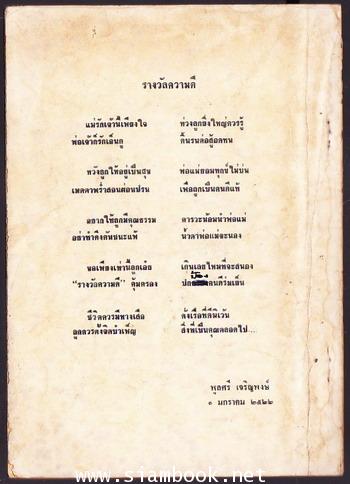 www.siambook.net
รางวัลความดี
แม่รักเจ้านี้เพียงใจ ห่วงลูกยิ่งใหญ่ควรรู้
พ่อเจ้าก็รักเอ็นดู ดิ้นรนต่อสู้อดทน
หวังลูกให้อยู่เป็นสุข พ่อแม่ยอมทุกข์ไม่บ่น
เมตตาพร่ำสอนผ่อนปรน เพื่อลูกเป็นคนดีแท้
อยากให้ลูกมีคุณธรรม คารวะน้อมนำพ่อแม่
อย่าทำดึงดันชนะแพ้ น้ำตาพ่อแม่จะนอง
ขอเพียงเท่านี้ลูกเอ๋ย เกินเลยไหมที่จะสนอง
"รางวัลความดี" คุ้มครอง ร่มเย็น
ชีวิตควรมีหางเสือ ดังเรือที่
ลูกควรตั้งจิตบำเพ็ญ สิ่งที่เป็นคุณตลอดไป...
พูลศรี เจริญพงษ์
๑ มกราคม ๒๕๒๒
www.siambook.net